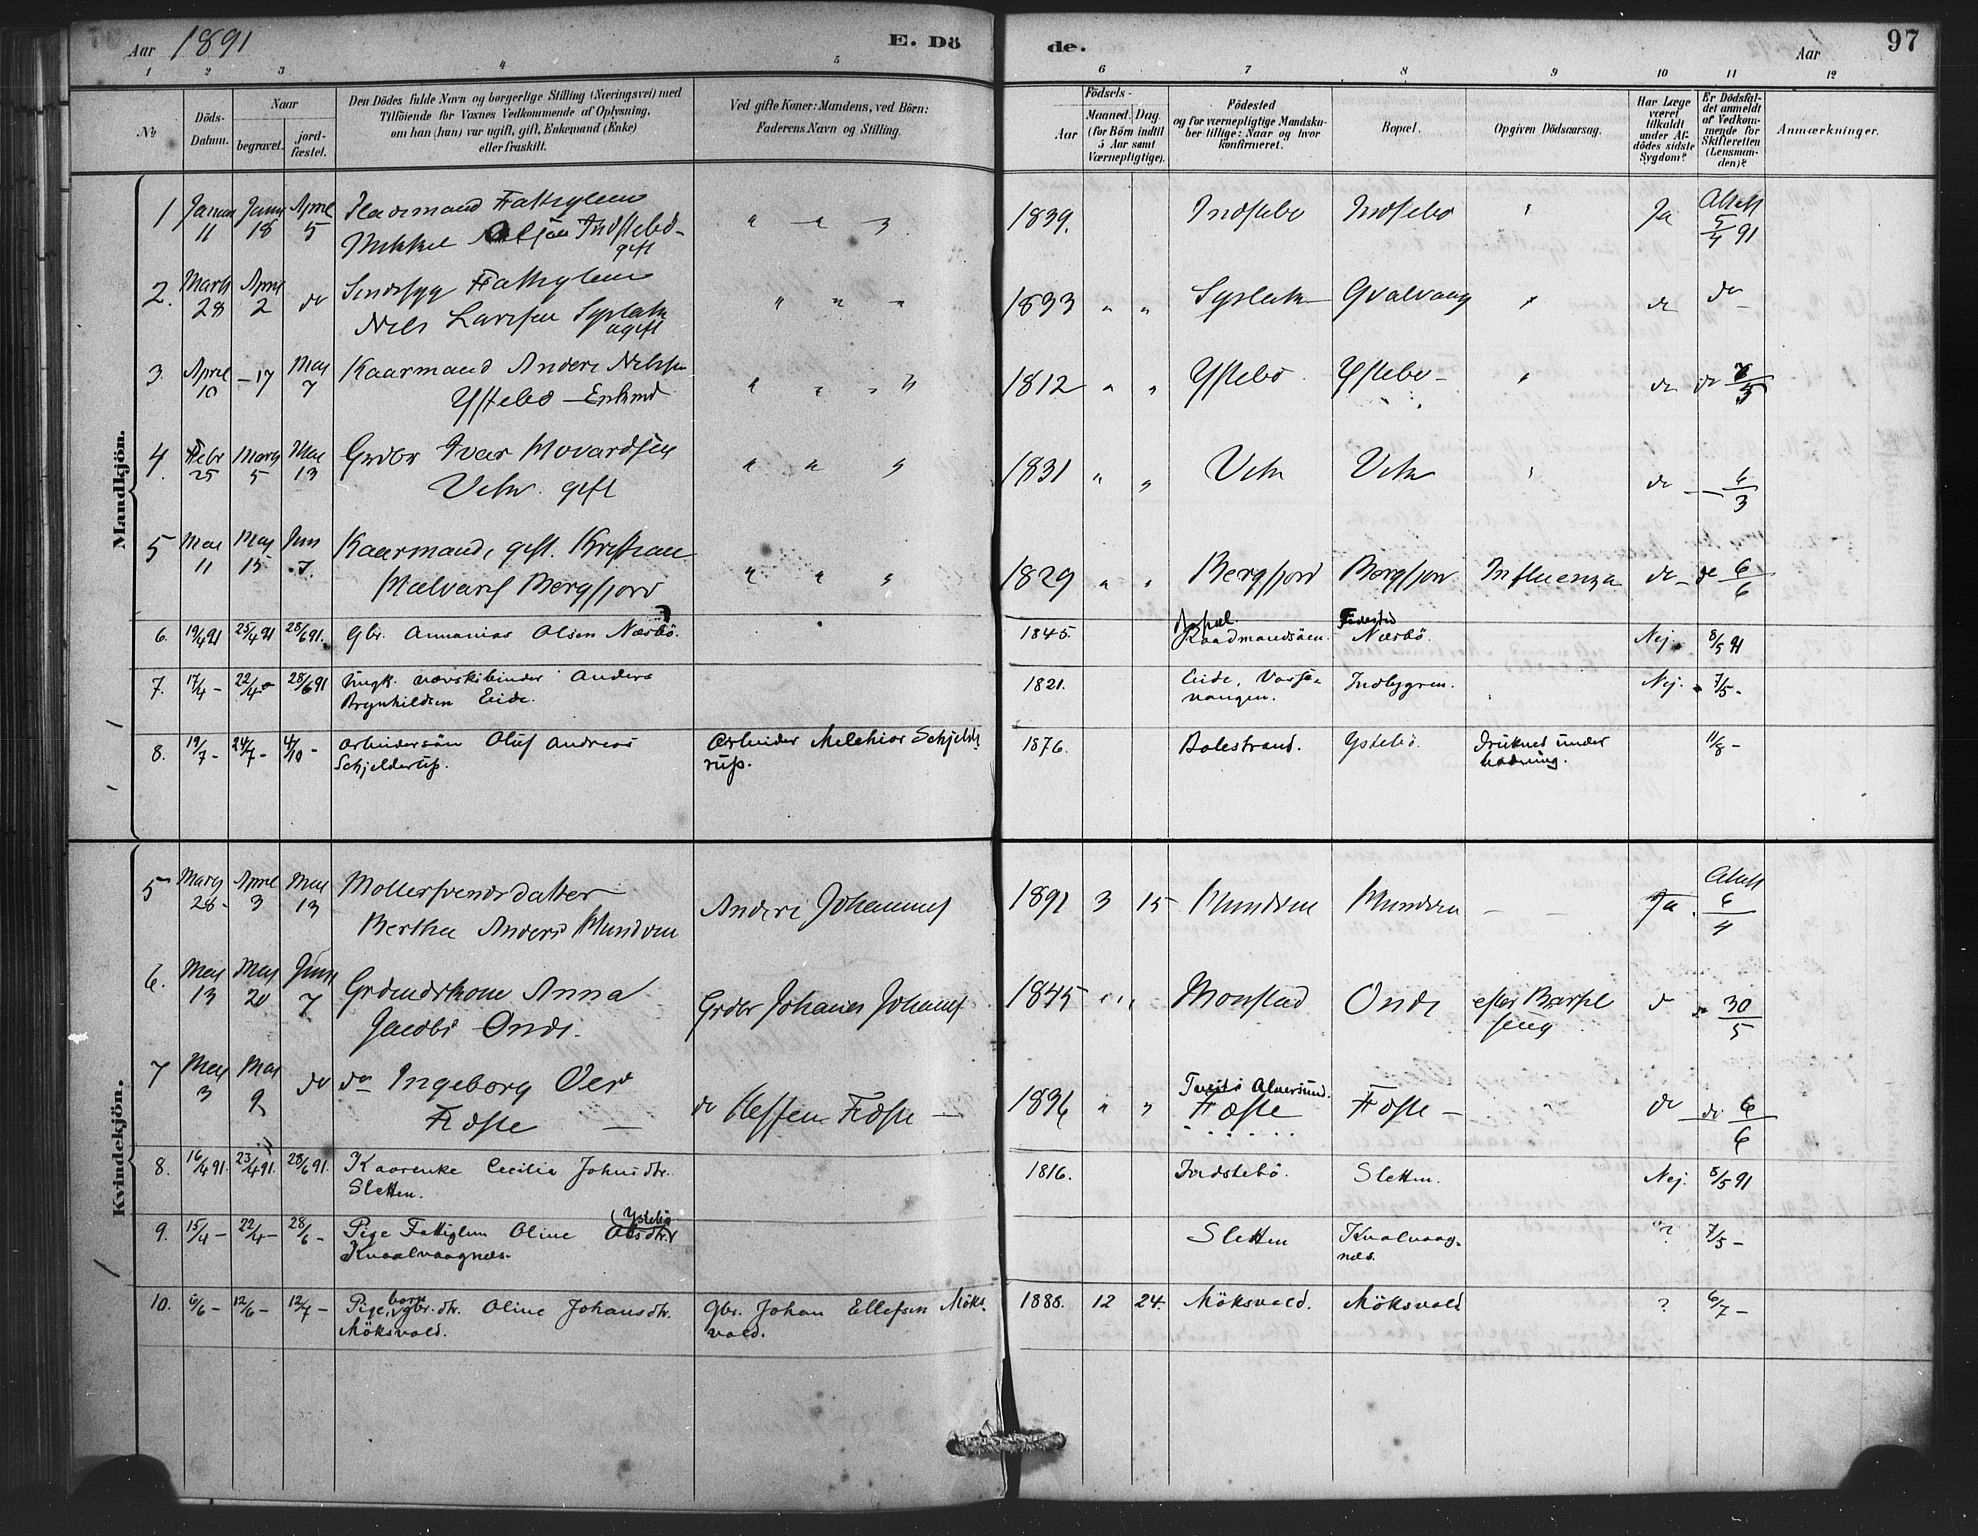 Aar 1891 E. Dö
de. Aar 97
1 2 3 4 5 6 7 8 9 10 11 12
No
Döds-
Datum.
Naar
begravet.
jord-
fæstet.
Den Dödes fulde Navn og borgerlige Stilling (Næringsvei) med
Tilföiende for Voxnes Vedkommende af Oplysning,
om han (hun) var ugift, gift, Enkemand (Enke)
eller fraskilt.
Ved gifte Koner: Mandens, ved Börn:
Faderens Navn og Stilling.
Födsels-
Aar
Maaned. Dag.
(for Börn indtil
5 Aar samt
Værnepligtige).
Födested
og for værnepligtige Mandska-
ber tillige: Naar og hvor
konfirmeret.
Bopæl.
Opgiven Dödsaarsag.
Har Læge
været
tilkaldt
under Af-
dödes sidste
Sygdom?
Er Dödsfal-
det anmeldt
af Vedkom-
mende for
Skifteretten
(Lensman-
den)?
Anmærkninger.
Mandkjön.
1 11 18 April 5 Mikkel Indstebö gift 1839. Indstebö Indstebö Ja Attest 5/4 91
2. Marts 28 April 2 do Sindssyg Fattiglem
Nils Larssen ugift 1833 do do
3. April 10 - 17 Mai 7 Kaarmand Anders Nilss
Ystebö - Enkmd 1812 Ystebö Ystebö do do
4. Febr 25 Marts 5 Mai 13 Grdbr Ivar Hovardsen
gift 1831 do
5 Mai 11 Mai 15 Juni 7 Kaarmand, gift. Kristian
Bergfjord 1829 Bergfjord Bergfjor Influenza do do 6/6
6. 19/4 91 25/4 91 28/6 91. Gbr. Annanias Olsen Næsbö. 1845. Kaadmandsöen. Næsbö. Nej. 8/5 91
7. 17/4 - 22/4 - 28/6 91 Ungk. vævskibinder Anders
Brynhildsen Eide. 1821. Eide, Vosse-
vangen. Indbygren. Nej. 7/5 -
8. 19/7 - 24/7 - 4/10 - Arbeidersön Oluf Andreas
Schjelderup. Arbeider Melchior Schjeld-
rup. 1876. Balestrand. Ystebö. Druknet under
badning. 11/8 -
Kvindekjön.
5 Marts 28 April 3 Mai 13 Möllersvendsdatter
Bertha Anders Mundven Anders Johannes 1891 3 15 Mundven Ja. Attest 6/4
6. Mai 13 Mai 20 Juni 7 Grdmdskone Anna
Jacobs Onds. Grdbr Johannes Johannes 1845 Monstad efter Barsel
seng do 30/5
7 Mai 3 Mai 9 do do Ingeborg
Föste do Steffen Föste Alversund. Föste Föste do do 6/6
8. 16/4 91. 23/4 91. 28/6 91. Kaarenke Cecilia Johnsdtr.
Sletten. 1816. Indstebö. Sletten. Nej. 8/5 91
9. 15/4 - 22/4 - 28/6 - Pige Fattiglem Oline Olsdtr. (Ystebö
Kvaalvaagnæs. Sletten Kvalvaag-
næs. ? 7/5 -
10. 5/6 - 12/6 - 12/7 - Pigebarn, gbr.dtr. Oline Johansdtr.
Möksvold. Gbr. Johan Ellefsen Möks-
vold. 1888. 12 24. Möksvold. Möksvold ? 6/7 -